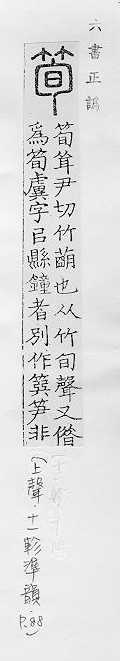 六書正譌
筍
筍聳尹切竹萌也从竹旬聲又借
爲筍虡字㠯縣鐘者別作簨笋非
(上聲·十一軫準韻 P.88)